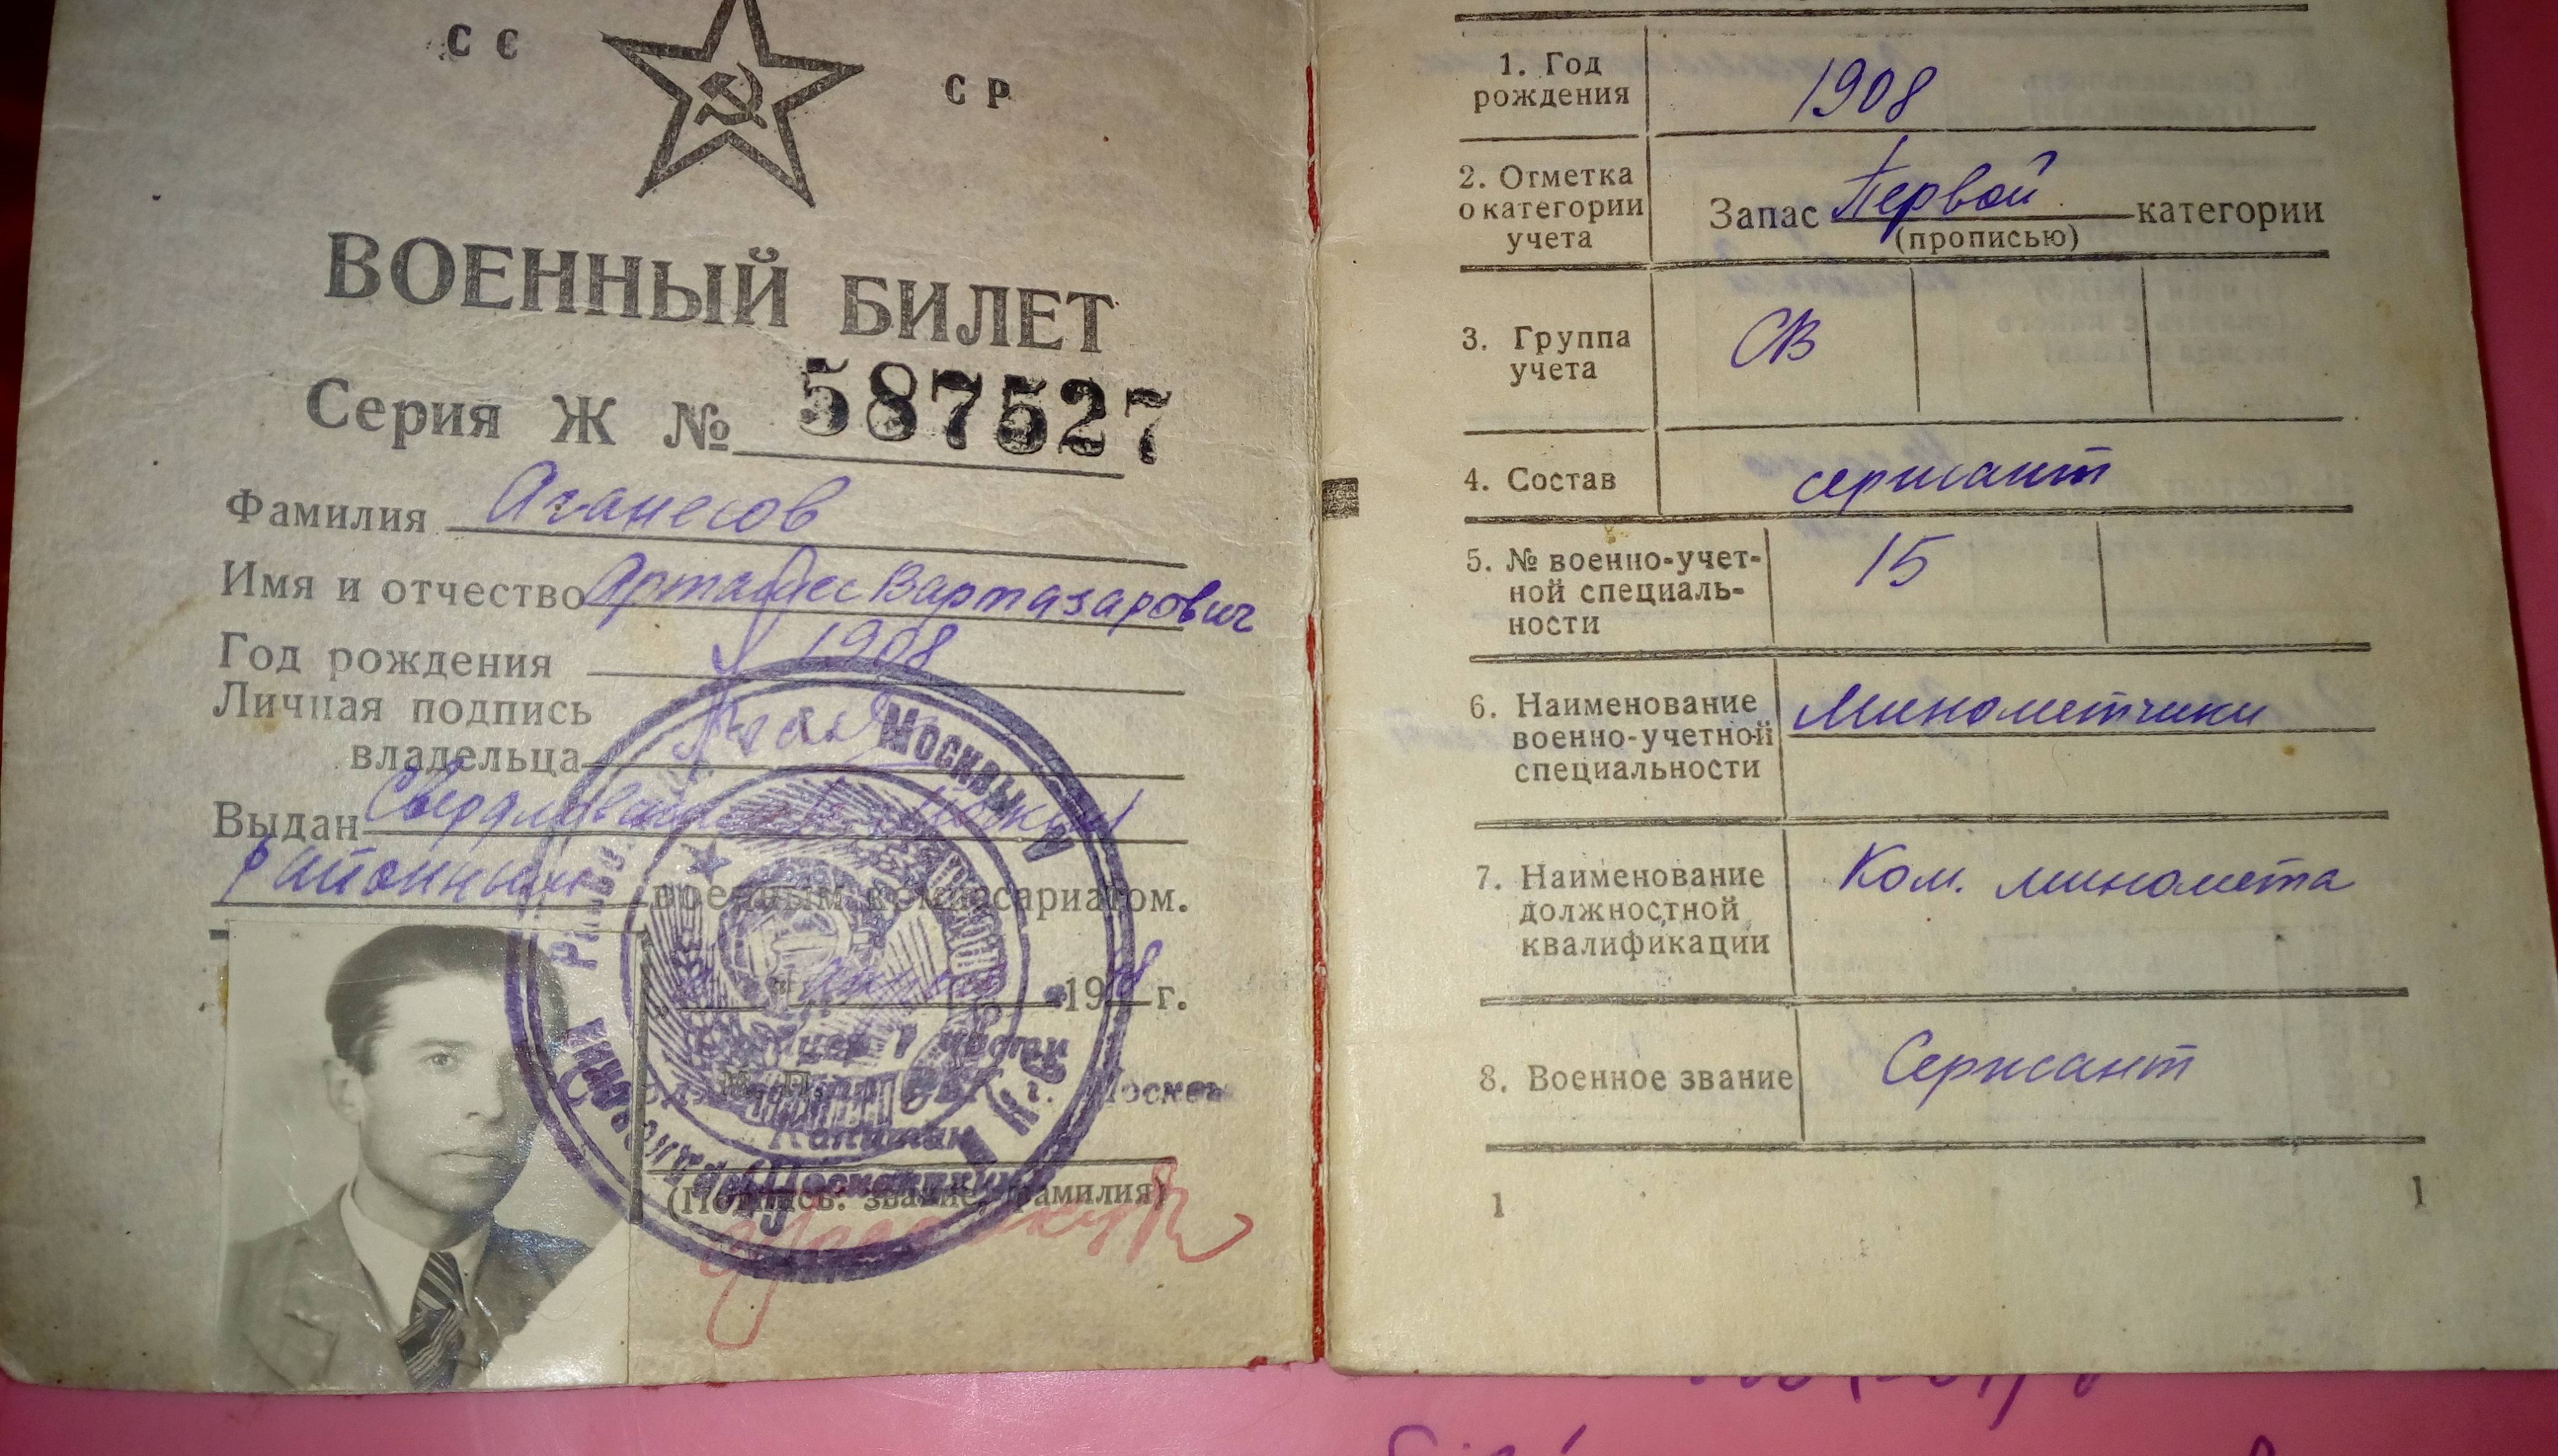 СС СР
ВОЕННЫЙ БИЛЕТ
Серия Ж № 587527
Фамилия Аганесов
Имя и отчество Арташес Вартазарович
Год рождения 1908
Личная подпись
владельца
Выдан Свердловским Москвы
районным военным комиссариатом.
19 г.
М. П. г. Москвы
Капитан
(Подпись: звание, фамилия)
1. Год
рождения
1908
2. Отметка
о категории
учета
Запас Первой категории
(прописью)
3. Группа
учета
СВ
4. Состав
сержант
5. № военно-учет-
ной специаль-
ности
15
6. Наименование
военно-учетной
специальности
Минометчики
7. Наименование
должностной
квалификации
Ком. миномета
8. Военное звание
Сержант
1 1